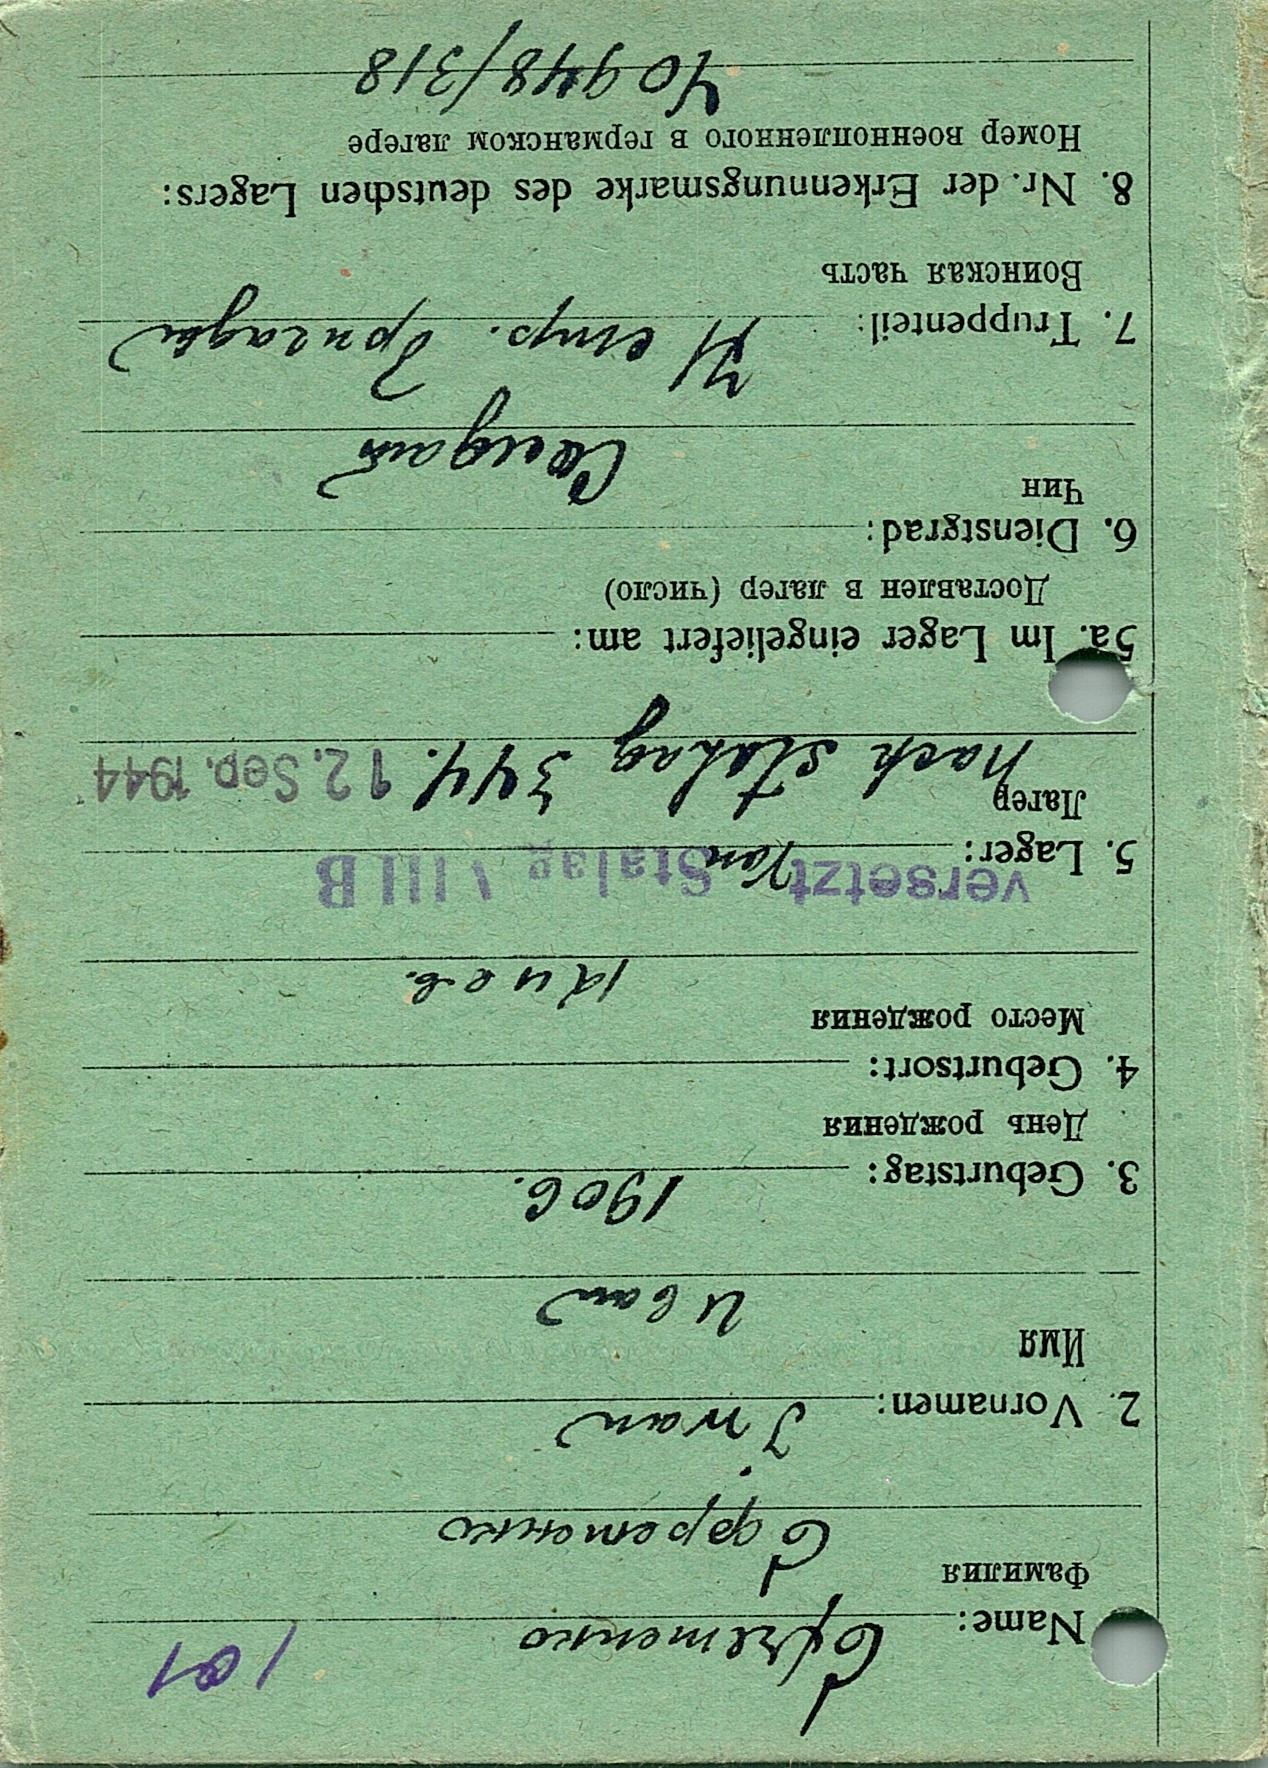 101
Name: Efremenko
Фамилия
Ефременко
2. Vornamen: Iwan
Имя
Иван
3. Geburtstag: 1906.
День рождения
4. Geburtsort:
Место рождения
Киев.
5. Lager: Von Stalag VIII B
versetzt
Лагер
nach Stalag 344. 12. Sep. 1944
5a. Im Lager eingeliefert am:
Доставлен в лагер (число)
6. Dienstgrad:
Чин
Солдат
7. Truppenteil: стр. бригады
Воинская часть
8. Nr. der Erkennungsmarke des deutschen Lagers:
Номер военнопленного в германском лагере
40948/318